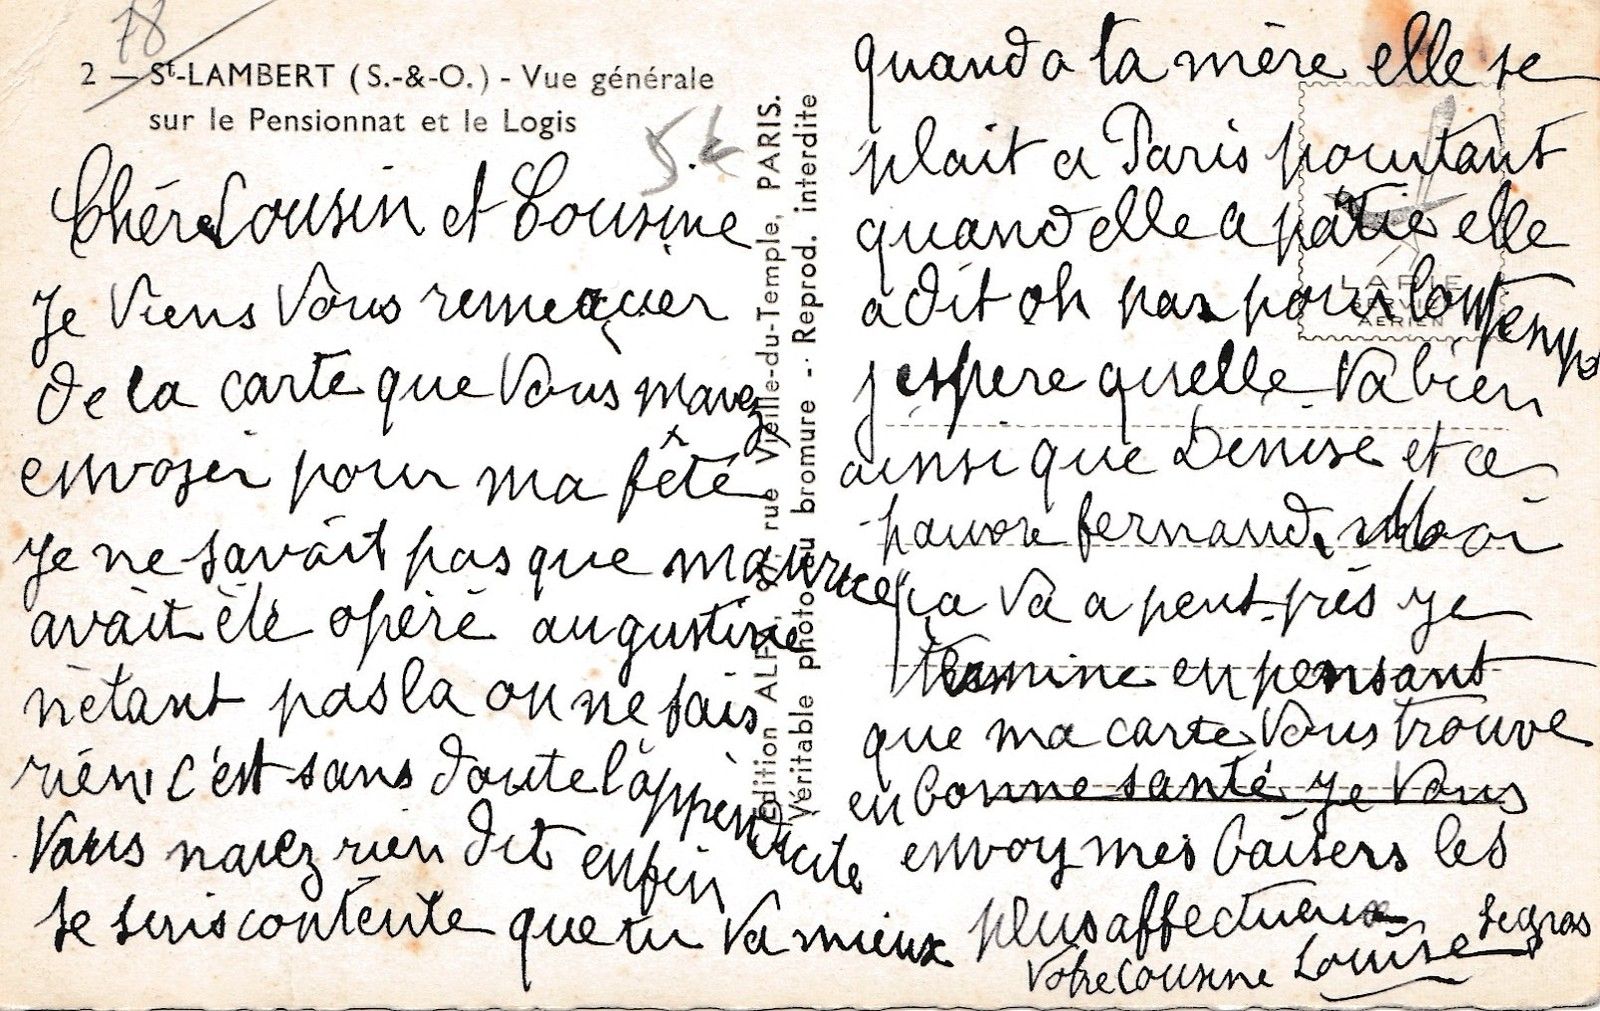 78
2 - St-LAMBERT (S.-&-O.) - Vue générale
sur le Pensionnat et le Logis
5.€
Chére Cousin et Cousine
Je viens vous remercier
de la carte que vous mavez
envoyer pour ma fêté
Je ne savait pas que maurice
avait été opéré augustine
nétant pas la on ne sais
rien c'est sans doute l'appendicite
Vous navez rien dit enfin
Je suis contente que tu va mieux
Edition ALFA, rue Vieille-du-Temple, PARIS.
Véritable photo au bromure - Reprod. interdite
quand a ta mère elle se
plait a Paris pourtant
quand elle a partie elle
a dit oh pas pour lontemps
j espere quelle va bien
ainsi que Denise et ce
pauvre fernand. Moi
ça va a peut-près Je
termine en pensant
que ma carte vous trouve
en bonne santé Je vous
envoy mes baisers les
plus affectueux
Votre cousine Louise Segras
LA PIE
SERVICE
AERIEN